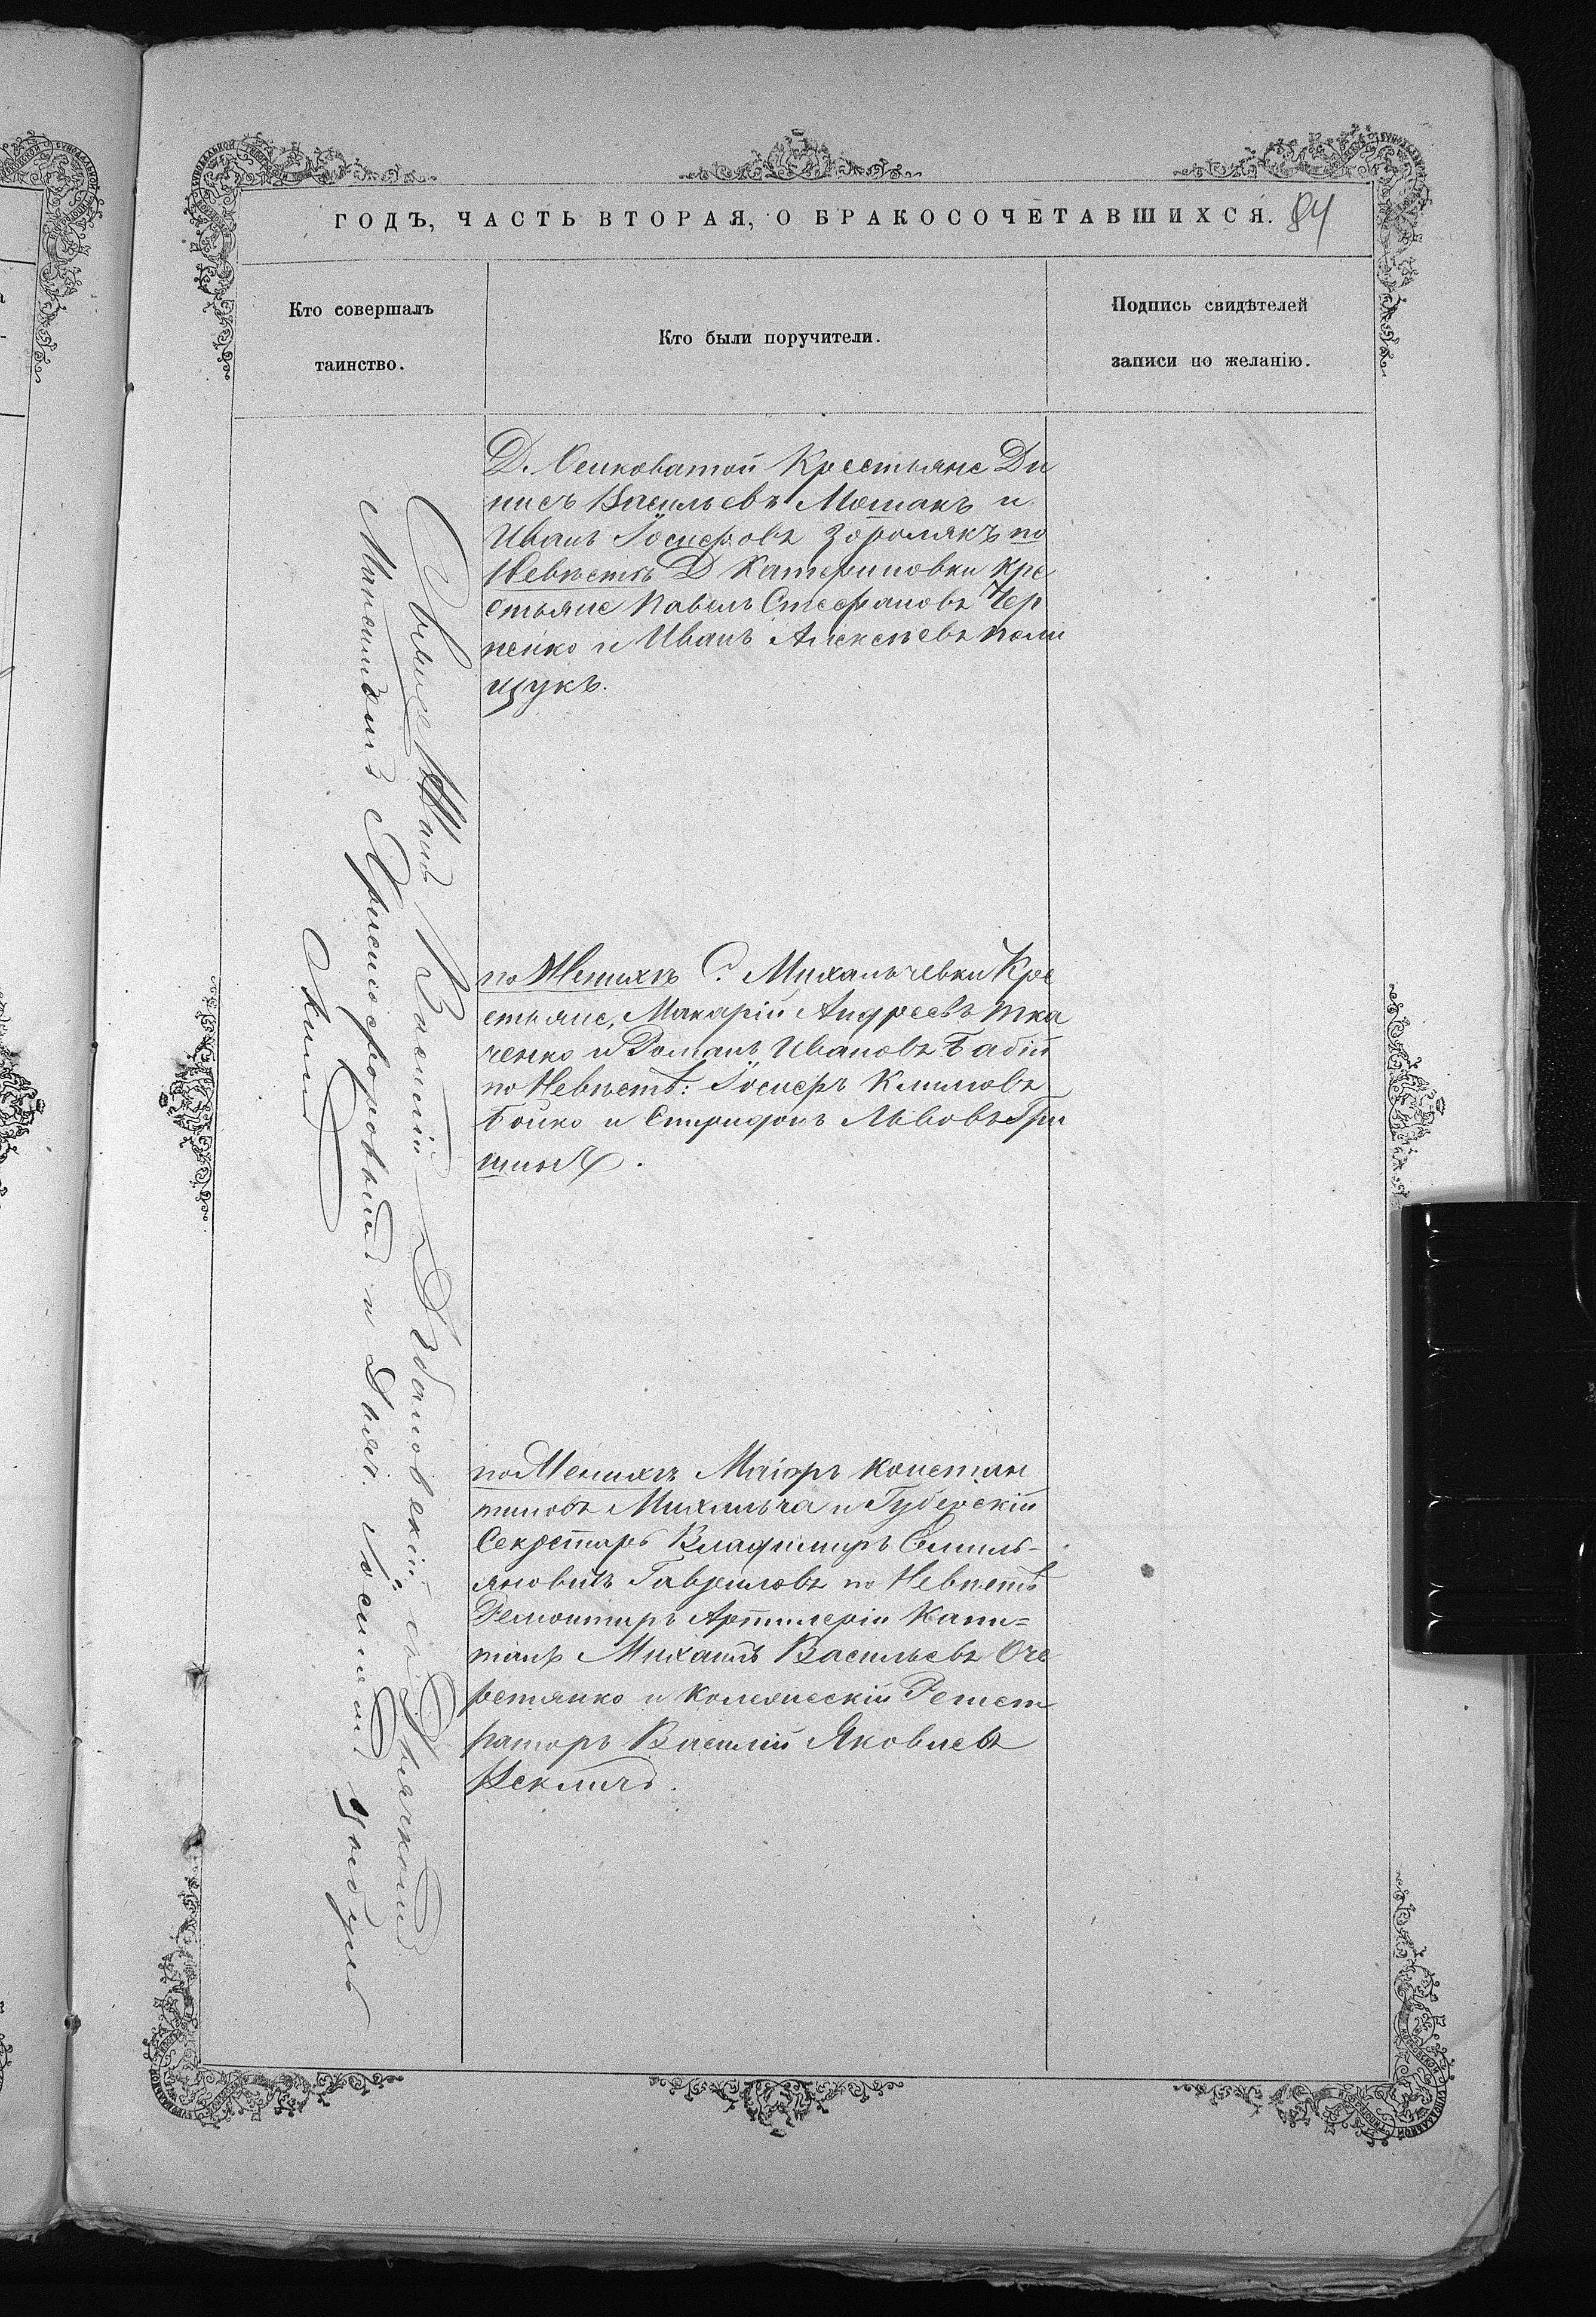 ГОДЪ, ЧАСТЬ ВТОРАЯ, О БРАКОСОЧЕТАВШИХСЯ. 84
Кто совершалъ
таинство.
Кто были поручители.
Подпись свидѣтелей
записи по желанію.
Священникъ Василій Дзбановскій съ
Христофоровымъ и
Д. Осиковатой Крестьяне Ди
нисъ Васильевъ Мотакъ и
Иванъ Іосифовъ по
Невѣстѣ Д Катериновки Кре
стьяне Павелъ Стефановъ Чер
ненко и Иванъ Алексѣевъ Поли
щукъ.
по Женихѣ С. Михальчевки Кре
стьяне, Макарій Андреевъ Тка
ченко и Романъ Ивановъ Бабій
по Невѣстѣ: Іосифъ Климовъ
Бойко и Спиридонъ Львовъ Гри
по Женихѣ Маіоръ Констан
тиновъ Михальча и Губерскій
Секретарь Владимиръ Емиль-
яновичъ Гавриловъ по Невѣстѣ
Ремонтиръ Артилеріи Капи=
танъ Михаилъ Васильевъ Оче
ретянко и Колежескій Регист
раторъ Василій Яковлевъ
Некличъ.